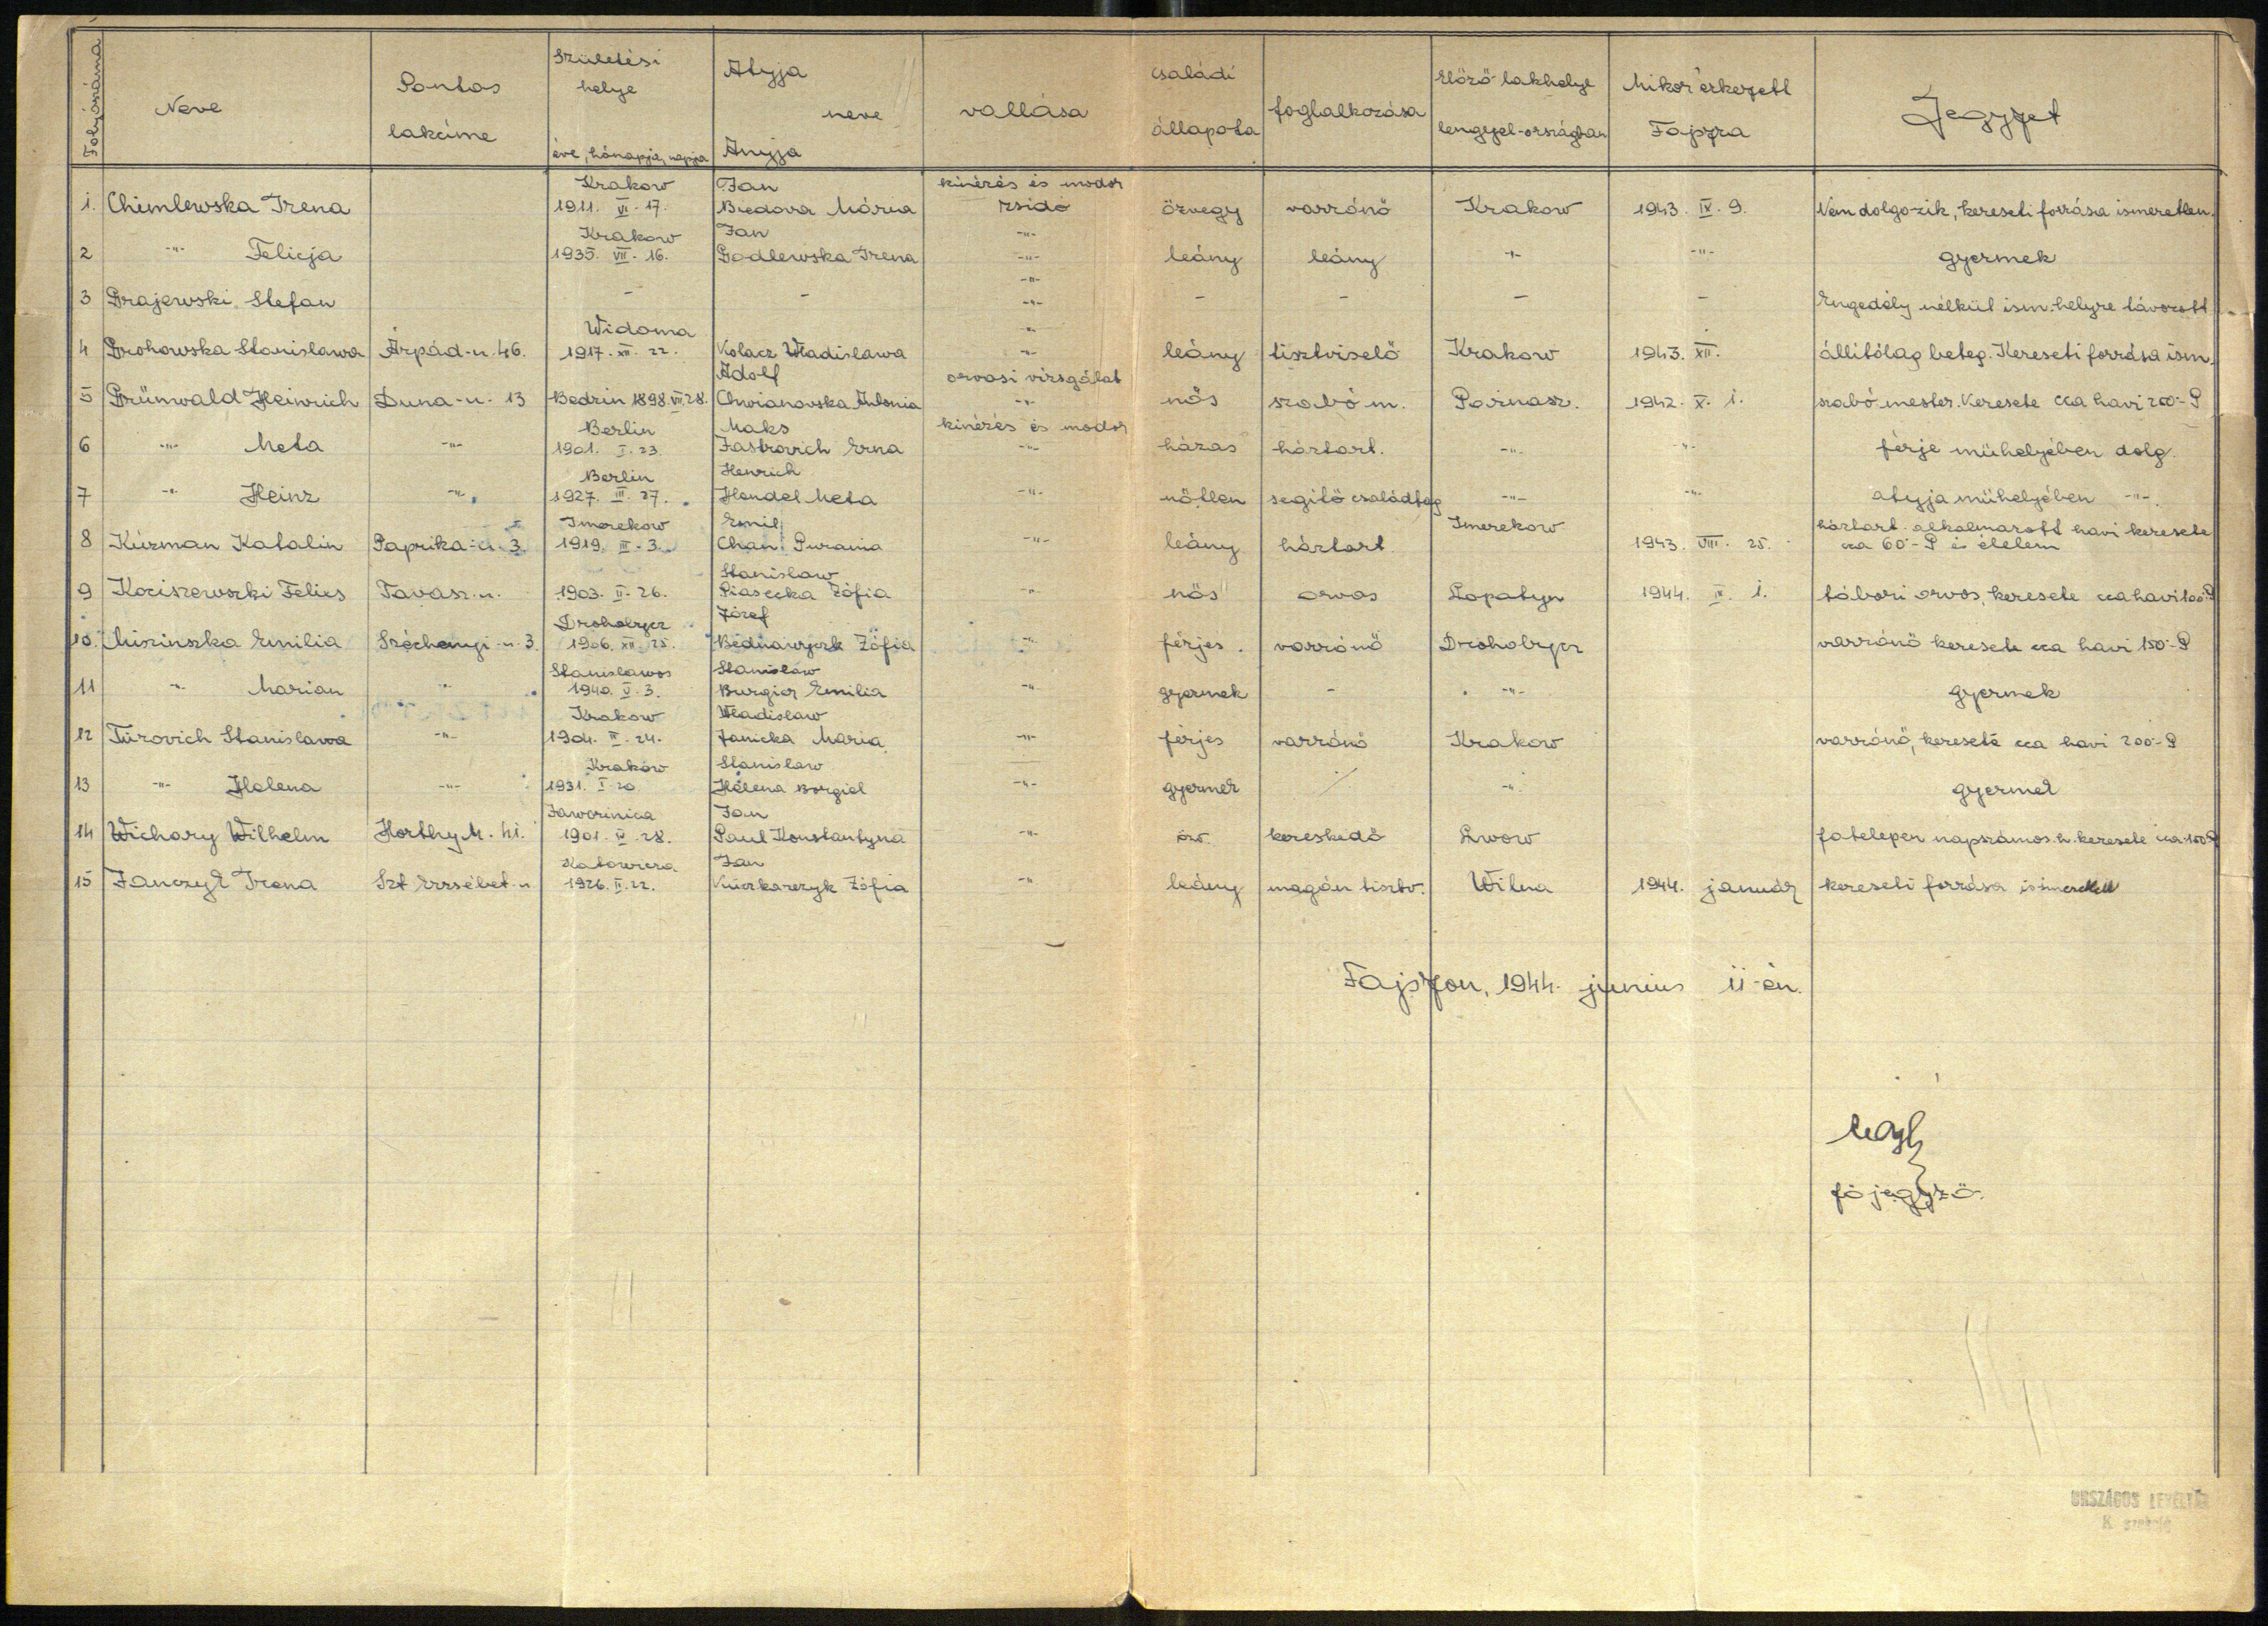 Folyószáma
Neve
Pontos lakcime
Születési helye éve, hónapja, napja
Atyja neve Anyja
vallása
családi állapota
foglalkozása
Előző lakhelye lengyel-országban
Mikor érkezett Fajszra
Jegyzet
Krakow Jan kinézés és modor
1. Chimlewska Irena 1911. VI. 17. Biedova Mária zsidó özvegy varrónő Krakow 1943. IX. 9. Nem dolgozik, kereseti forrása ismeretlen.
Krakow Jan -"-
2 -"- Felicja 1935. VII. 16. Godlewska Irena -"- leány leány -"- -"- gyermek
-"-
3 Grajewski Stefan - - -"- - - - - Engedély nélkül ism. helyre távozott
Widoma -"-
4 Grohowska Stanislawa Árpád-u. 46. 1917. XII. 22. Kolacz Wladislawa -"- leány tisztviselő Krakow 1943. XII. állitólag beteg. Kereseti forrása ism.
Adolf orvosi vizsgálat
5 Grünwald Heinrich Duna-u. 13 Bedzin 1898. VII. 28. Chwianovska Antonia -"- nős szabó m. Poznasz. 1942. X. 1. szabó mester. Keresete cca havi 200.-P
Berlin Maks kinézés és modor
6 -"- Meta -"- 1901. I. 23. Jastrovich Erna -"- házas háztart. -"- -"- férje mühelyében dolg.
Berlin Henrich
7 -"- Heinz -"- 1927. III. 27. Hendel Meta -"- nőtlen segitő családtag -"- -"- atyja mühelyében -"-.
Imerekow Emil Imerekow háztart. alkalmazott havi keresete
8 Kúzman Katalin Paprika-u. 3. 1919. III. 3. Chan Purania -"- leány háztart. 1943. VIII. 25. cca 60.-P és élelem
Stanislaw
9 Koziszewszki Felics Tavasz-u. 1903. II. 26. Piasecka Zófia -"- nős orvos Lopatyn 1944. IV. 1. tábori orvos, keresete cca havi 100.-P
Drohobycz Józef
10. Miszinszka Emilia Széchenyi-u. 3. 1906. XII. 25. Bednarczyk Zófia -"- férjes. varrónő Drohobycz varrónő keresete cca havi 150.-P
Stanislawos Stanislaw
11 -"- Marian -"- 1940. V. 3. Burgier Emilia -"- gyermek - -"- gyermek
Krakow Wladislaw
12 Türovich Stanislawa -"- 1904. IV. 24. Janicka Maria -"- férjes varrónő Krakow varrónő, keresete cca havi 200.-P
Kraków Stanislaw
13 -"- Helena -"- 1931. I. 20. Helena Borgiel -"- gyermek / -"- gyermek
Jaworinica Jan
14 Wichary Wilhelm Horthy M. h.i. 1901. IV. 28. Paul Konstantyna -"- özv. kereskedő Lwow fatelepen napszámos. h. keresete cca 100.-P
Katowicza Jan
15 Janczyk Irena Szt Erzsébet-u 1926. II. 22. Kuczkarczyk Zófia -"- leány magán tisztv. Wilna 1944. január kereseti forrása ismeretlen
Fajszon, 1944. junius 11-én.
főjegyző.
ORSZÁGOS LEVÉLTÁR
K szekció